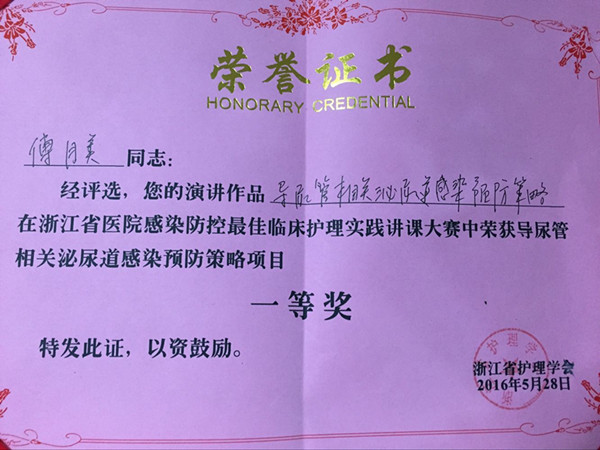 荣誉证书
HONORARY CREDENTIAL
傅月美 同志：
经评选，您的演讲作品 导尿管相关泌尿道感染预防策略
在浙江省医院感染防控最佳临床护理实践讲课大赛中荣获导尿管
相关泌尿道感染预防策略项目
一等奖
特发此证，以资鼓励。
浙江省护理学会
2016年5月28日
护理学